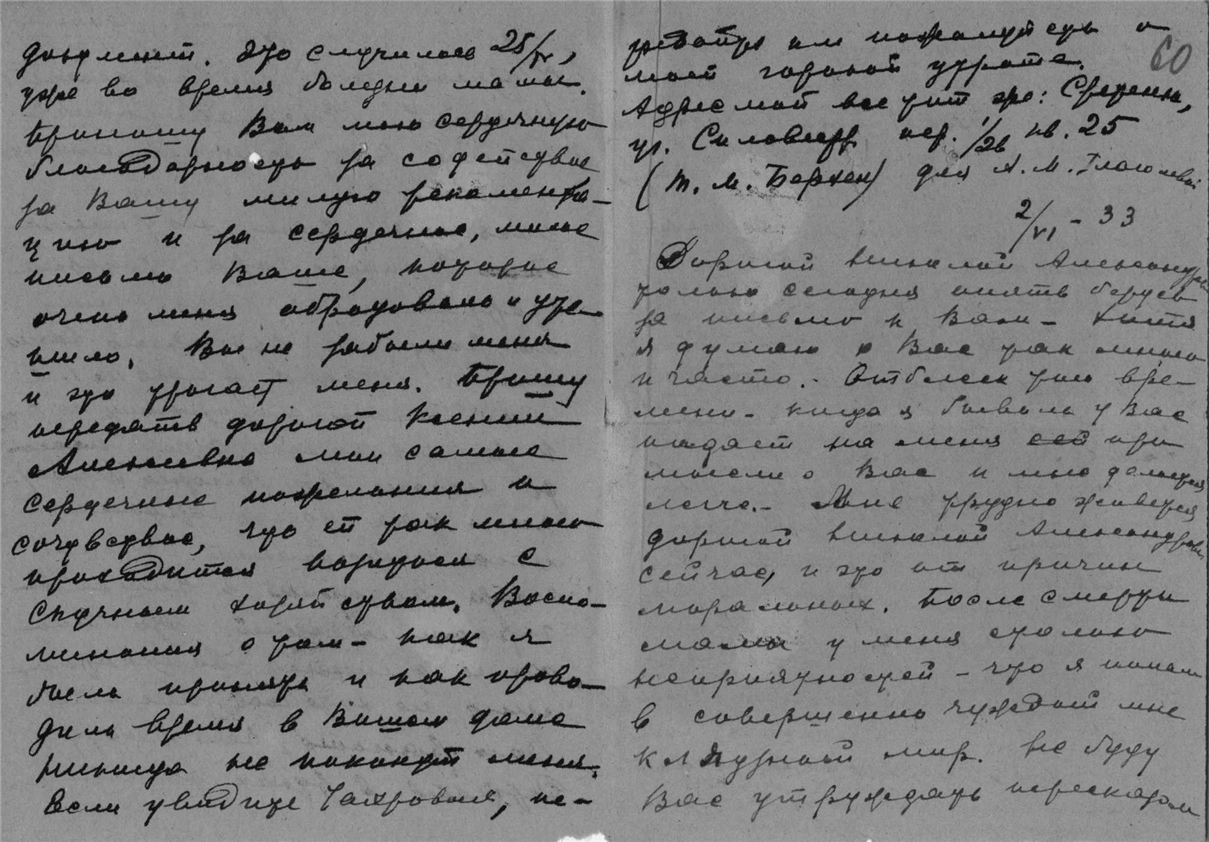 документ. Это случилось 25/IV,
уже во время болезни мамы.
Приношу Вам мою сердечную
благодарность за содействие
за Вашу милую рекоменда-
цию и за сердечное, милое
письмо Ваше, которое
очень меня обрадовало и уте-
шило. Вы не забыли меня
и это трогает меня. Прошу
передать дорогой Ксении
Алексеевне мои самые
сердечные пожелания и
сочувствие, что ей так много
приходится возиться с
скучным хозяйством. Воспо-
минания о том – как я
была принята и как прово-
дила время в Вашем доме
никогда не покинут меня.
Если увидите Чахровых, пе-
редайте им пожалуйста о
моей горькой утрате.
60
Адрес мой все тот же:
ул. 1/26 кв. 25
(Т. М. Берхен) для А. М. Глаголевой
2/VI – 33
Дорогой Николай Александрович
только сегодня опять берусь
за письмо к Вам – хотя
я думаю о Вас так много
и часто. – Отблеск того вре-
мени – когда я бывала у Вас
падает на меня при
мысли о Вас и мне делается
легче. – Мне трудно живется
дорогой Николай Александрович
сейчас, и это от причин
моральных. После смерти
мамы у меня столько
неприятностей – что я попала
в совершенно чуждый мне
кляузный мир. Не буду
Вас утруждать пересказом